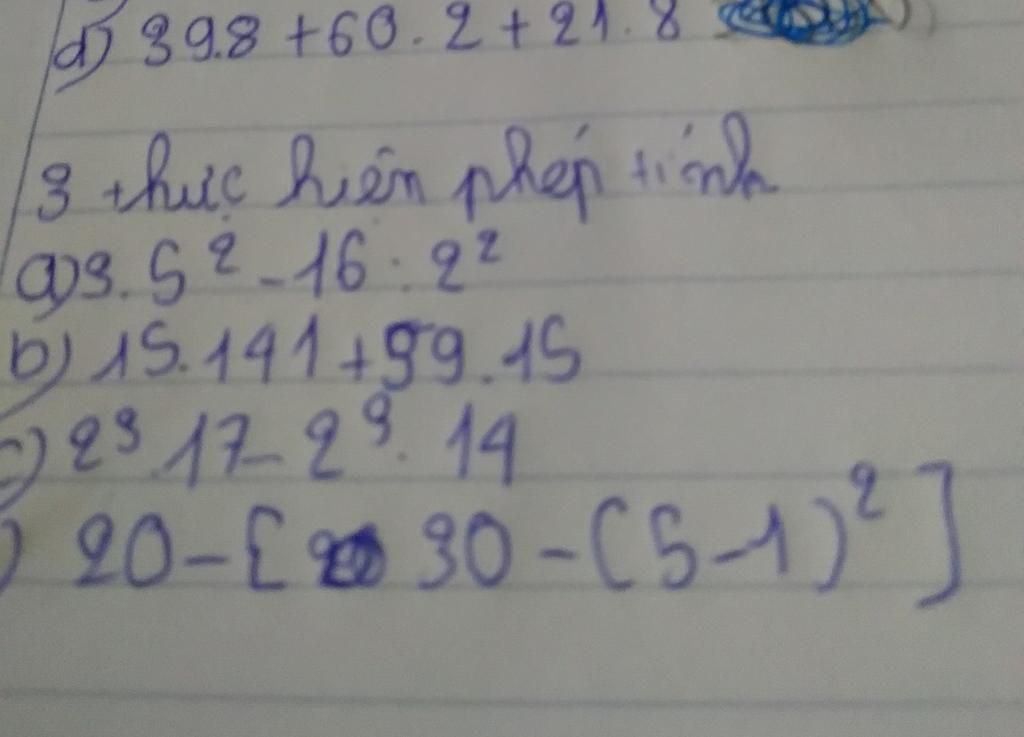 d) 39.8 + 60.2 + 21.8
3 thực hiện phép tính
a) 3.5² - 16 : 2²
b) 15.141 + 59.15
c) 2³.17 - 2³.14
) 20 - [ 30 - (5 - 1)² ]